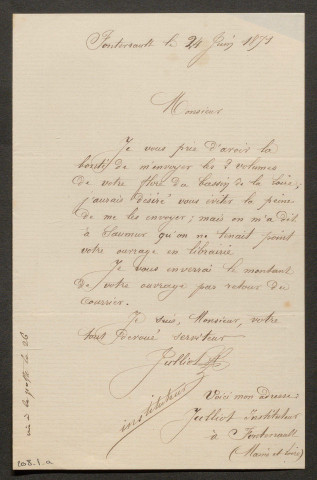 Fontevrault le 24 Juin 1871
Monsieur
Je vous prie d'avoir la
bonté de m'envoyer les 2 volumes
de votre flore du bassin de la Loire;
j'aurais désiré vous éviter la peine
de me les envoyer; mais on m'a dit
à Saumur qu'on ne tenait point
votre ouvrage en librairie
Je vous enverrai le montant
de votre ouvrage par retour du
courrier.
Je suis, Monsieur, votre
tout dévoué serviteur
Julliot
instituteur
Voici mon adresse:
Julliot Instituteur
à Fontevrault
(Maine et Loire)
mis à la poste le 26
108.1.a